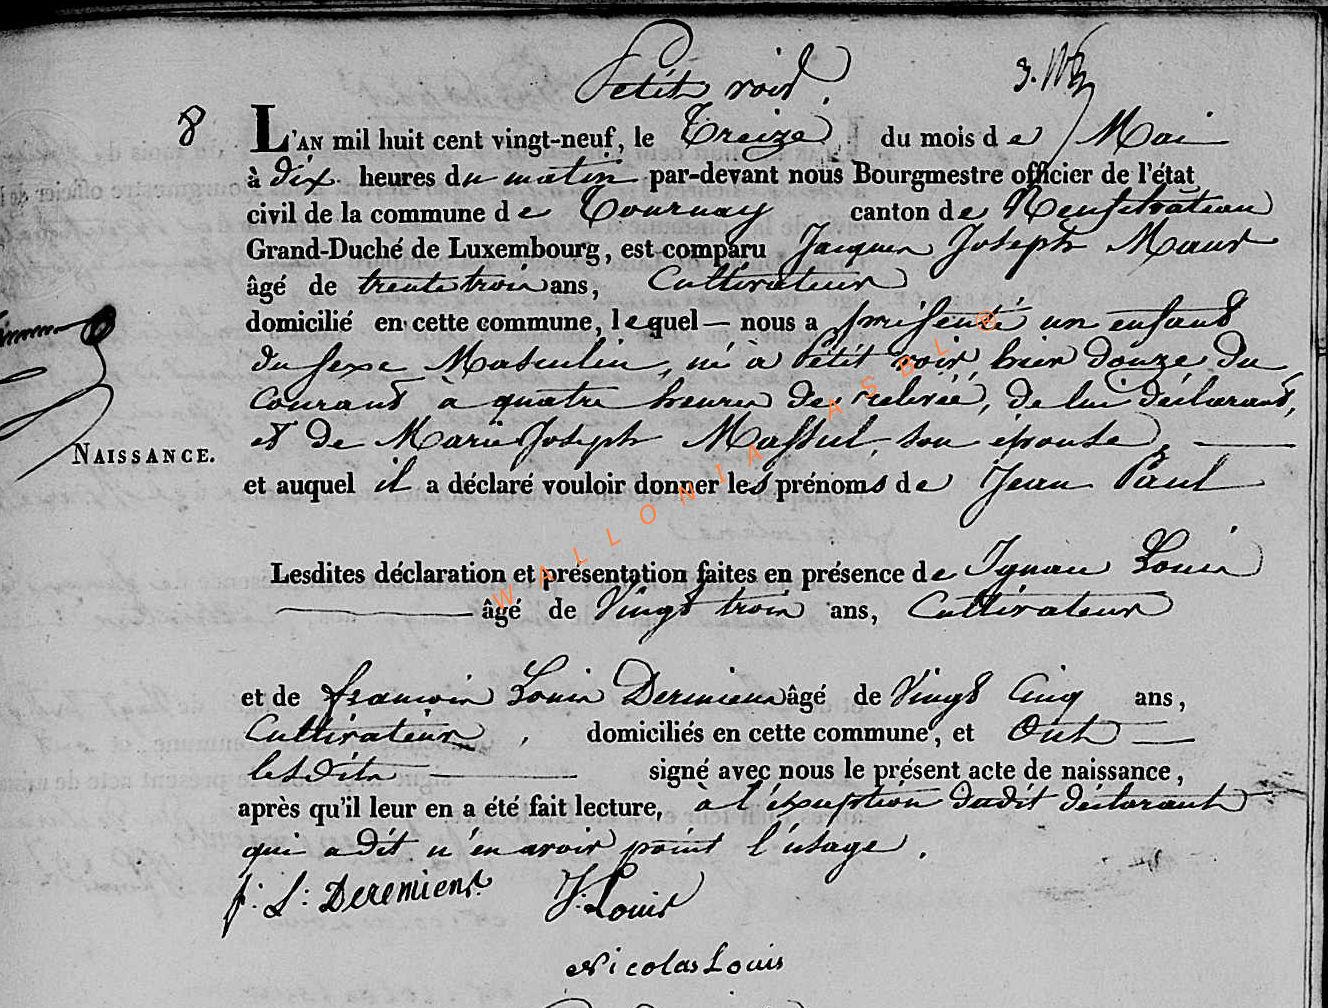 Petit voir.
8
L'AN mil huit cent vingt-neuf, le Treize du mois de Mai
à dix heures du matin par-devant nous Bourgmestre officier de l'état
civil de la commune de Tournay canton de Neufchateau
Grand-Duché de Luxembourg, est comparu Jacques Joseph Maus
âgé de trente trois ans, Cultivateur
domicilié en cette commune, lequel — nous a présenté un enfant
du sexe Masculin, né à Petit voir, hier douze du
courant à quatre heures de relevée, de lui déclarant,
et de Marie Joseph Massul, son épouse,
NAISSANCE.
et auquel il a déclaré vouloir donner les prénoms de Jean Paul
Lesdites déclaration et présentation faites en présence de Ignace Louis
âgé de Vingt trois ans, Cultivateur
et de françois Louis Deremiens âgé de Vingt Cinq ans,
Cultivateur, domiciliés en cette commune, et Ont
lesdits signé avec nous le présent acte de naissance,
après qu'il leur en a été fait lecture, à l'exception dudit déclarant
qui a dit n'en avoir point l'usage.
f: L: Deremiens J: Louis
Nicolas Louis
WALLONIA ASBL ®